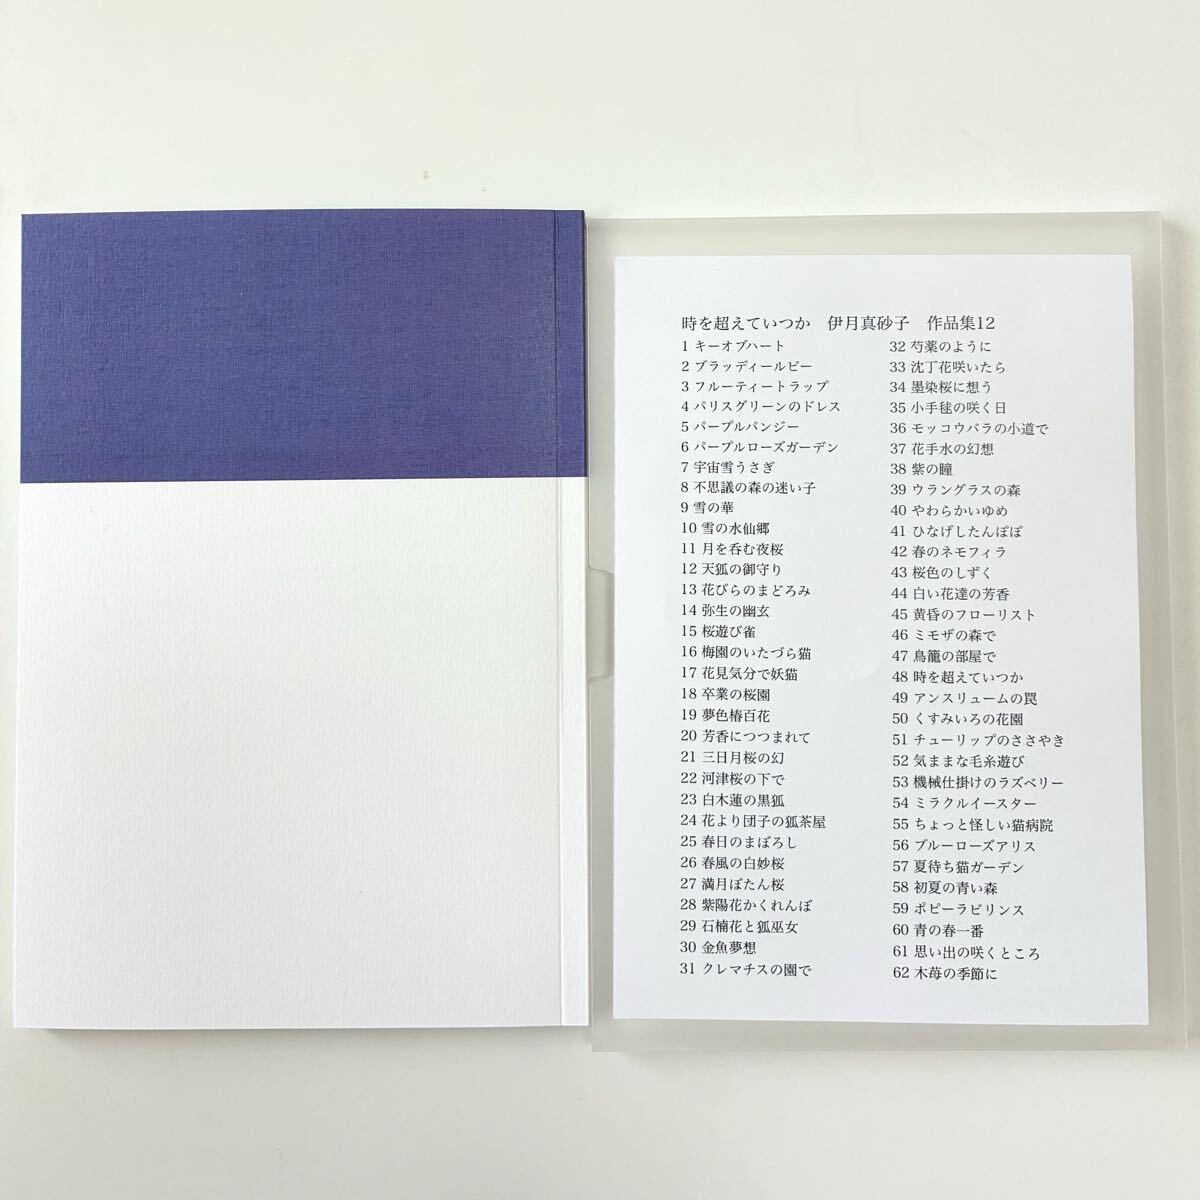 時を超えていつか 伊月真砂子 作品集12
1 キーオブハート
2 ブラッディールビー
3 フルーティートラップ
4 パリスグリーンのドレス
5 パープルパンジー
6 パープルローズガーデン
7 宇宙雪うさぎ
8 不思議の森の迷い子
9 雪の華
10 雪の水仙郷
11 月を呑む夜桜
12 天狐の御守り
13 花びらのまどろみ
14 弥生の幽玄
15 桜遊び雀
16 梅園のいたづら猫
17 花見気分で妖猫
18 卒業の桜園
19 夢色椿百花
20 芳香につつまれて
21 三日月桜の幻
22 河津桜の下で
23 白木蓮の黒狐
24 花より団子の狐茶屋
25 春日のまぼろし
26 春風の白妙桜
27 満月ぼたん桜
28 紫陽花かくれんぼ
29 石楠花と狐巫女
30 金魚夢想
31 クレマチスの園で
32 芍薬のように
33 沈丁花咲いたら
34 墨染桜に想う
35 小手毬の咲く日
36 モッコウバラの小道で
37 花手水の幻想
38 紫の瞳
39 ウラングラスの森
40 やわらかいゆめ
41 ひなげしたんぽぽ
42 春のネモフィラ
43 桜色のしずく
44 白い花達の芳香
45 黄昏のフローリスト
46 ミモザの森で
47 鳥籠の部屋で
48 時を超えていつか
49 アンスリュームの罠
50 くすみいろの花園
51 チューリップのささやき
52 気ままな毛糸遊び
53 機械仕掛けのラズベリー
54 ミラクルイースター
55 ちょっと怪しい猫病院
56 ブルーローズアリス
57 夏待ち猫ガーデン
58 初夏の青い森
59 ポピーラビリンス
60 青の春一番
61 思い出の咲くところ
62 木苺の季節に